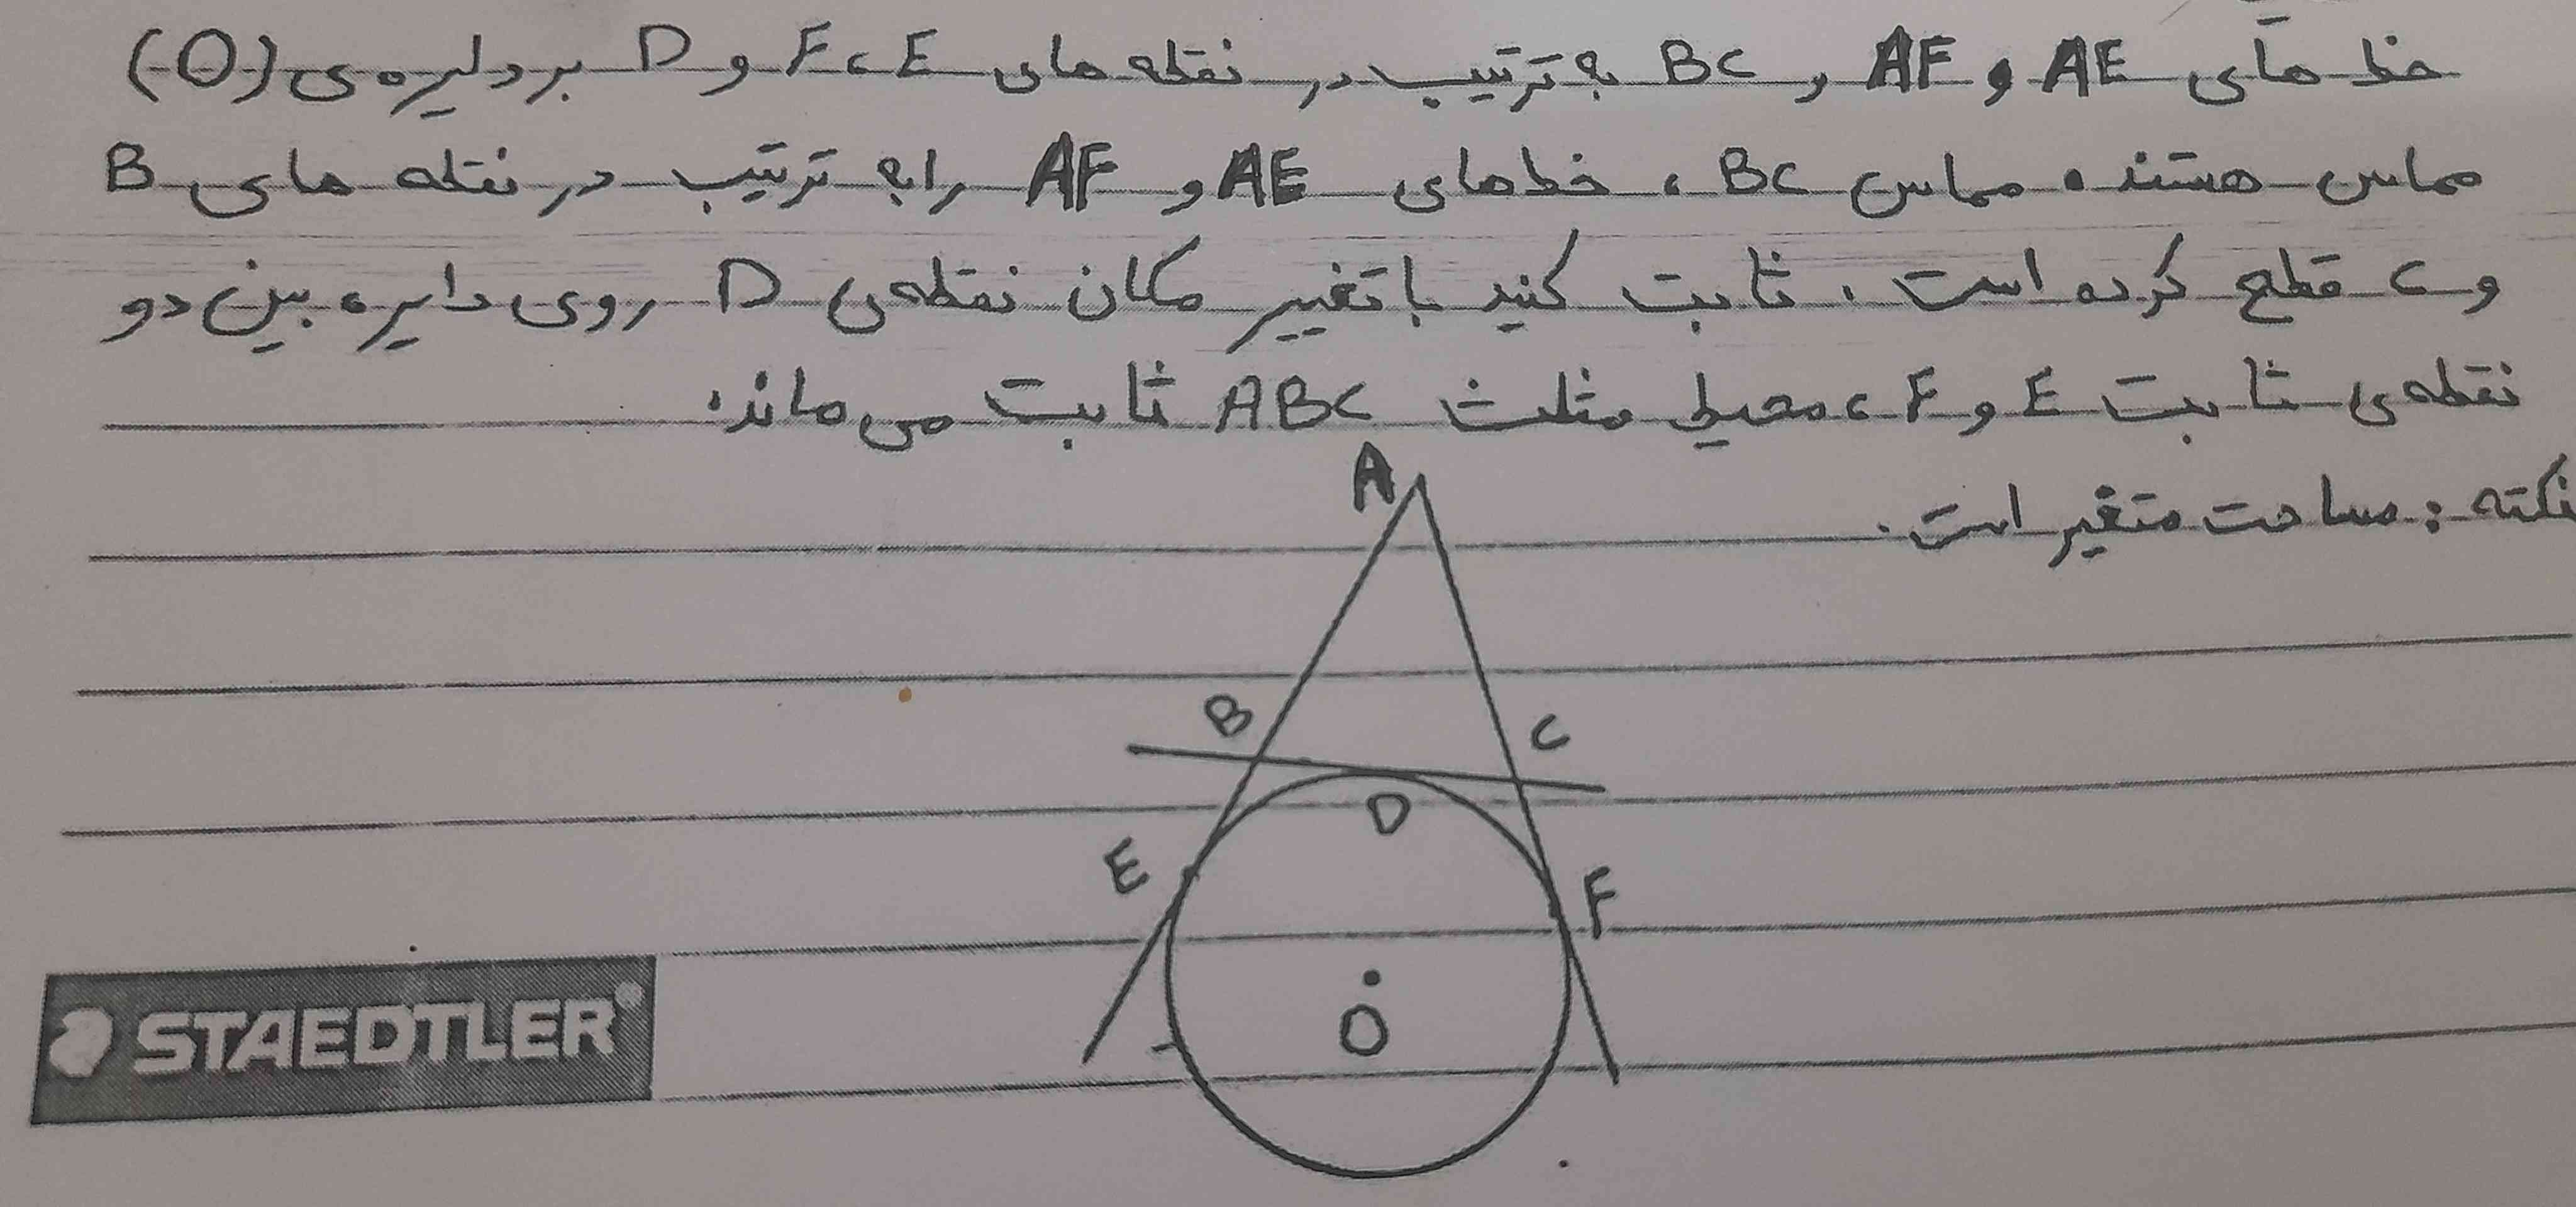 خط های AE و AF و BC به ترتیب در نقطه های E، F و D بر دایره ی (O)
مماس هستند. مماس BC، خط های AE و AF را به ترتیب در نقطه های B
و C قطع کرده است. ثابت کنید با تغییر مکان نقطه ی D روی دایره، بین دو
نقطه ی ثابت E و F، محیط مثلث ABC ثابت می ماند.
نکته: مساحت متغیر است.
A
B
C
D
E
F
O
STAEDTLER